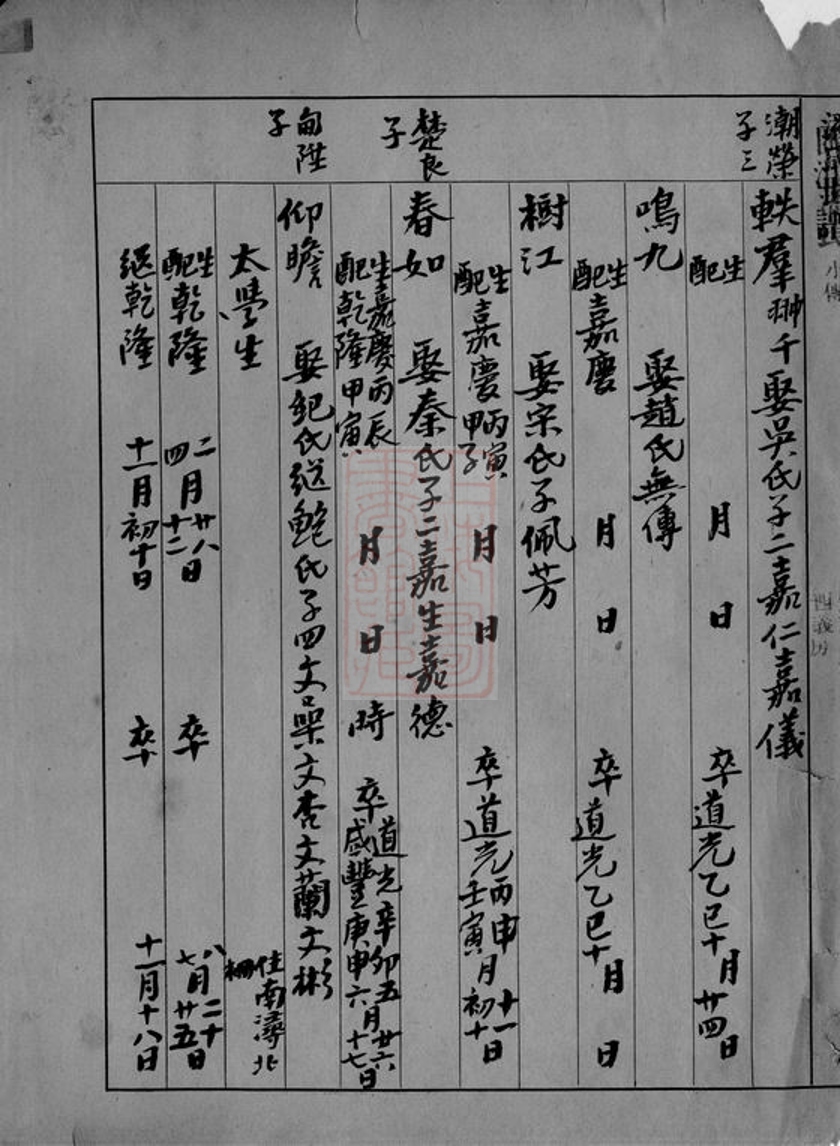 潮榮
子三
軼羣翀千娶吳氏子二嘉仁嘉儀
生
配
月 日 卒道光乙巳十月廿四日
鳴九 娶趙氏無傳
生
配嘉慶 月 日 卒道光乙巳十月 日
樹江 娶宋氏子佩芳
生
配嘉慶丙寅
甲子 月 日 卒道光丙申
壬寅月十一
初十日
楚良
子
春如 娶秦氏子二嘉生嘉德
生嘉慶丙辰
配乾隆甲寅 月 日 時 卒道光辛卯五月廿六
咸豐庚申六月十七日
甸陞
子
仰瞻 娶紀氏繼鮑氏子四文杲文杏文蘭文彬
太學生 住南潯北
柵
生
配乾隆 二
四月廿八
十二日 卒 八
七月二十
廿五日
繼乾隆 十一月初十日 卒 十一月十八日